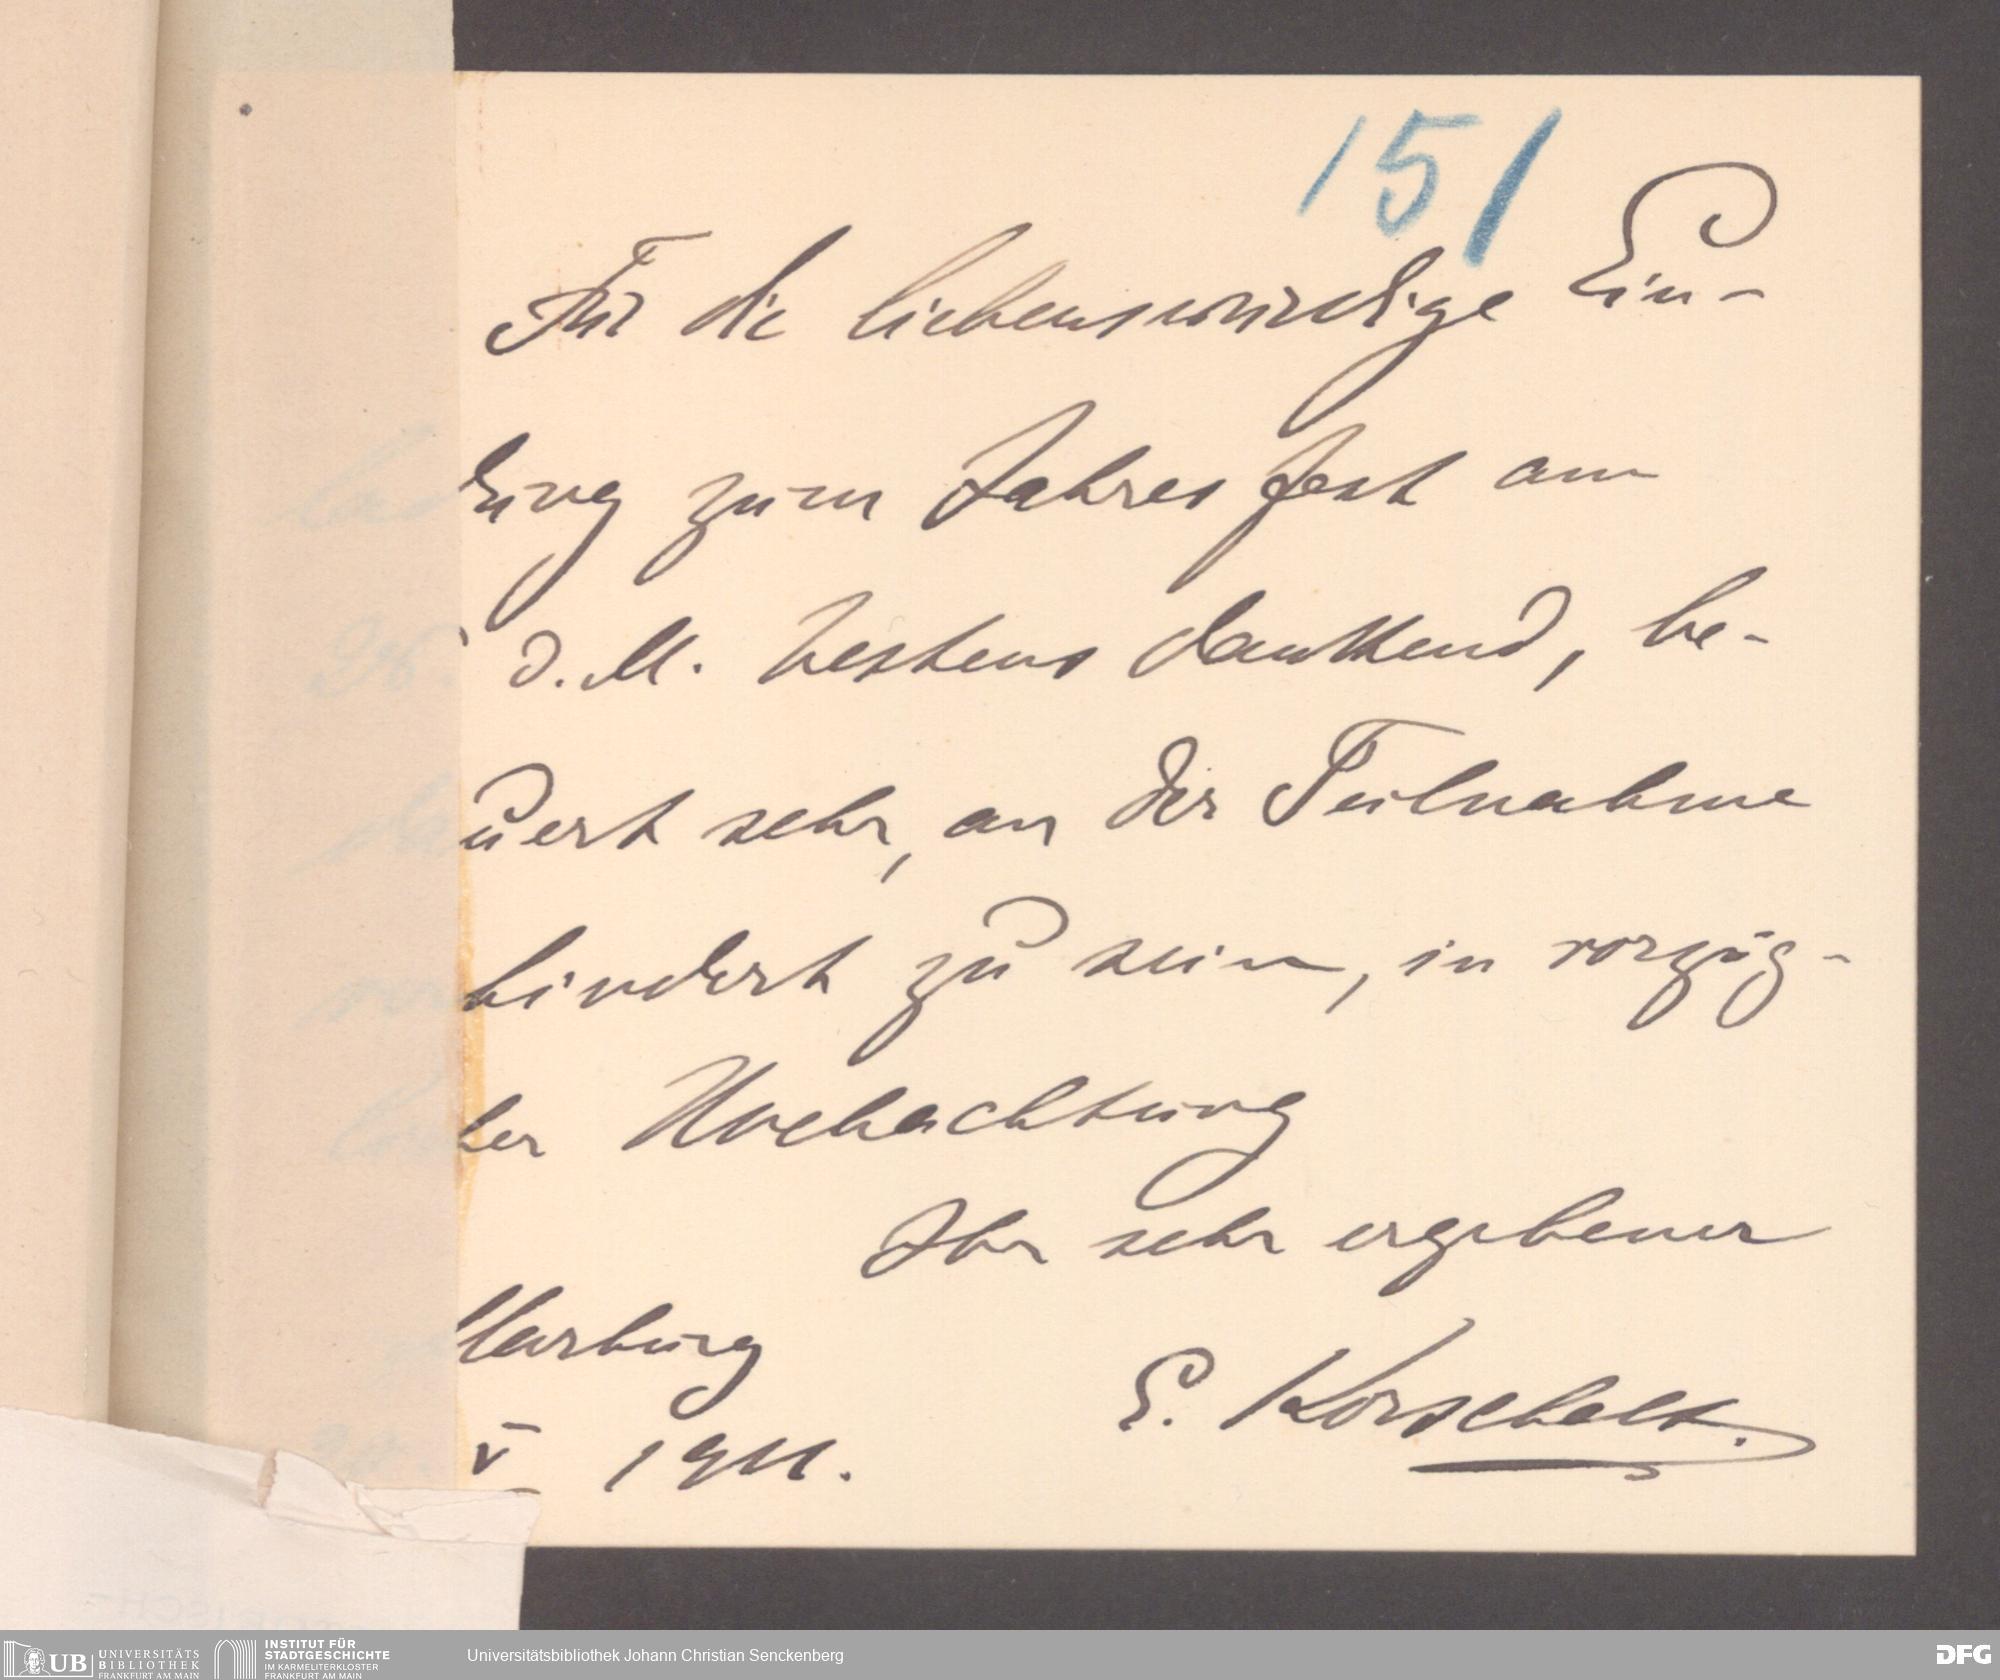 151
Für die liebenswürdige Ein-
ladung zum Jahresfest am
28. d. M. bestens dankend, be-
dauert sehr, an der Teilnahme
verhindert zu sein, in vorzüg-
licher Hochachtung
Ihr sehr ergebener
Marburg
E. Korschelt.
V 1911.
UB UNIVERSITÄTS BIBLIOTHEK FRANKFURT AM MAIN
INSTITUT FÜR STADTGESCHICHTE IM KARMELITERKLOSTER FRANKFURT AM MAIN
Universitätsbibliothek Johann Christian Senckenberg
DFG